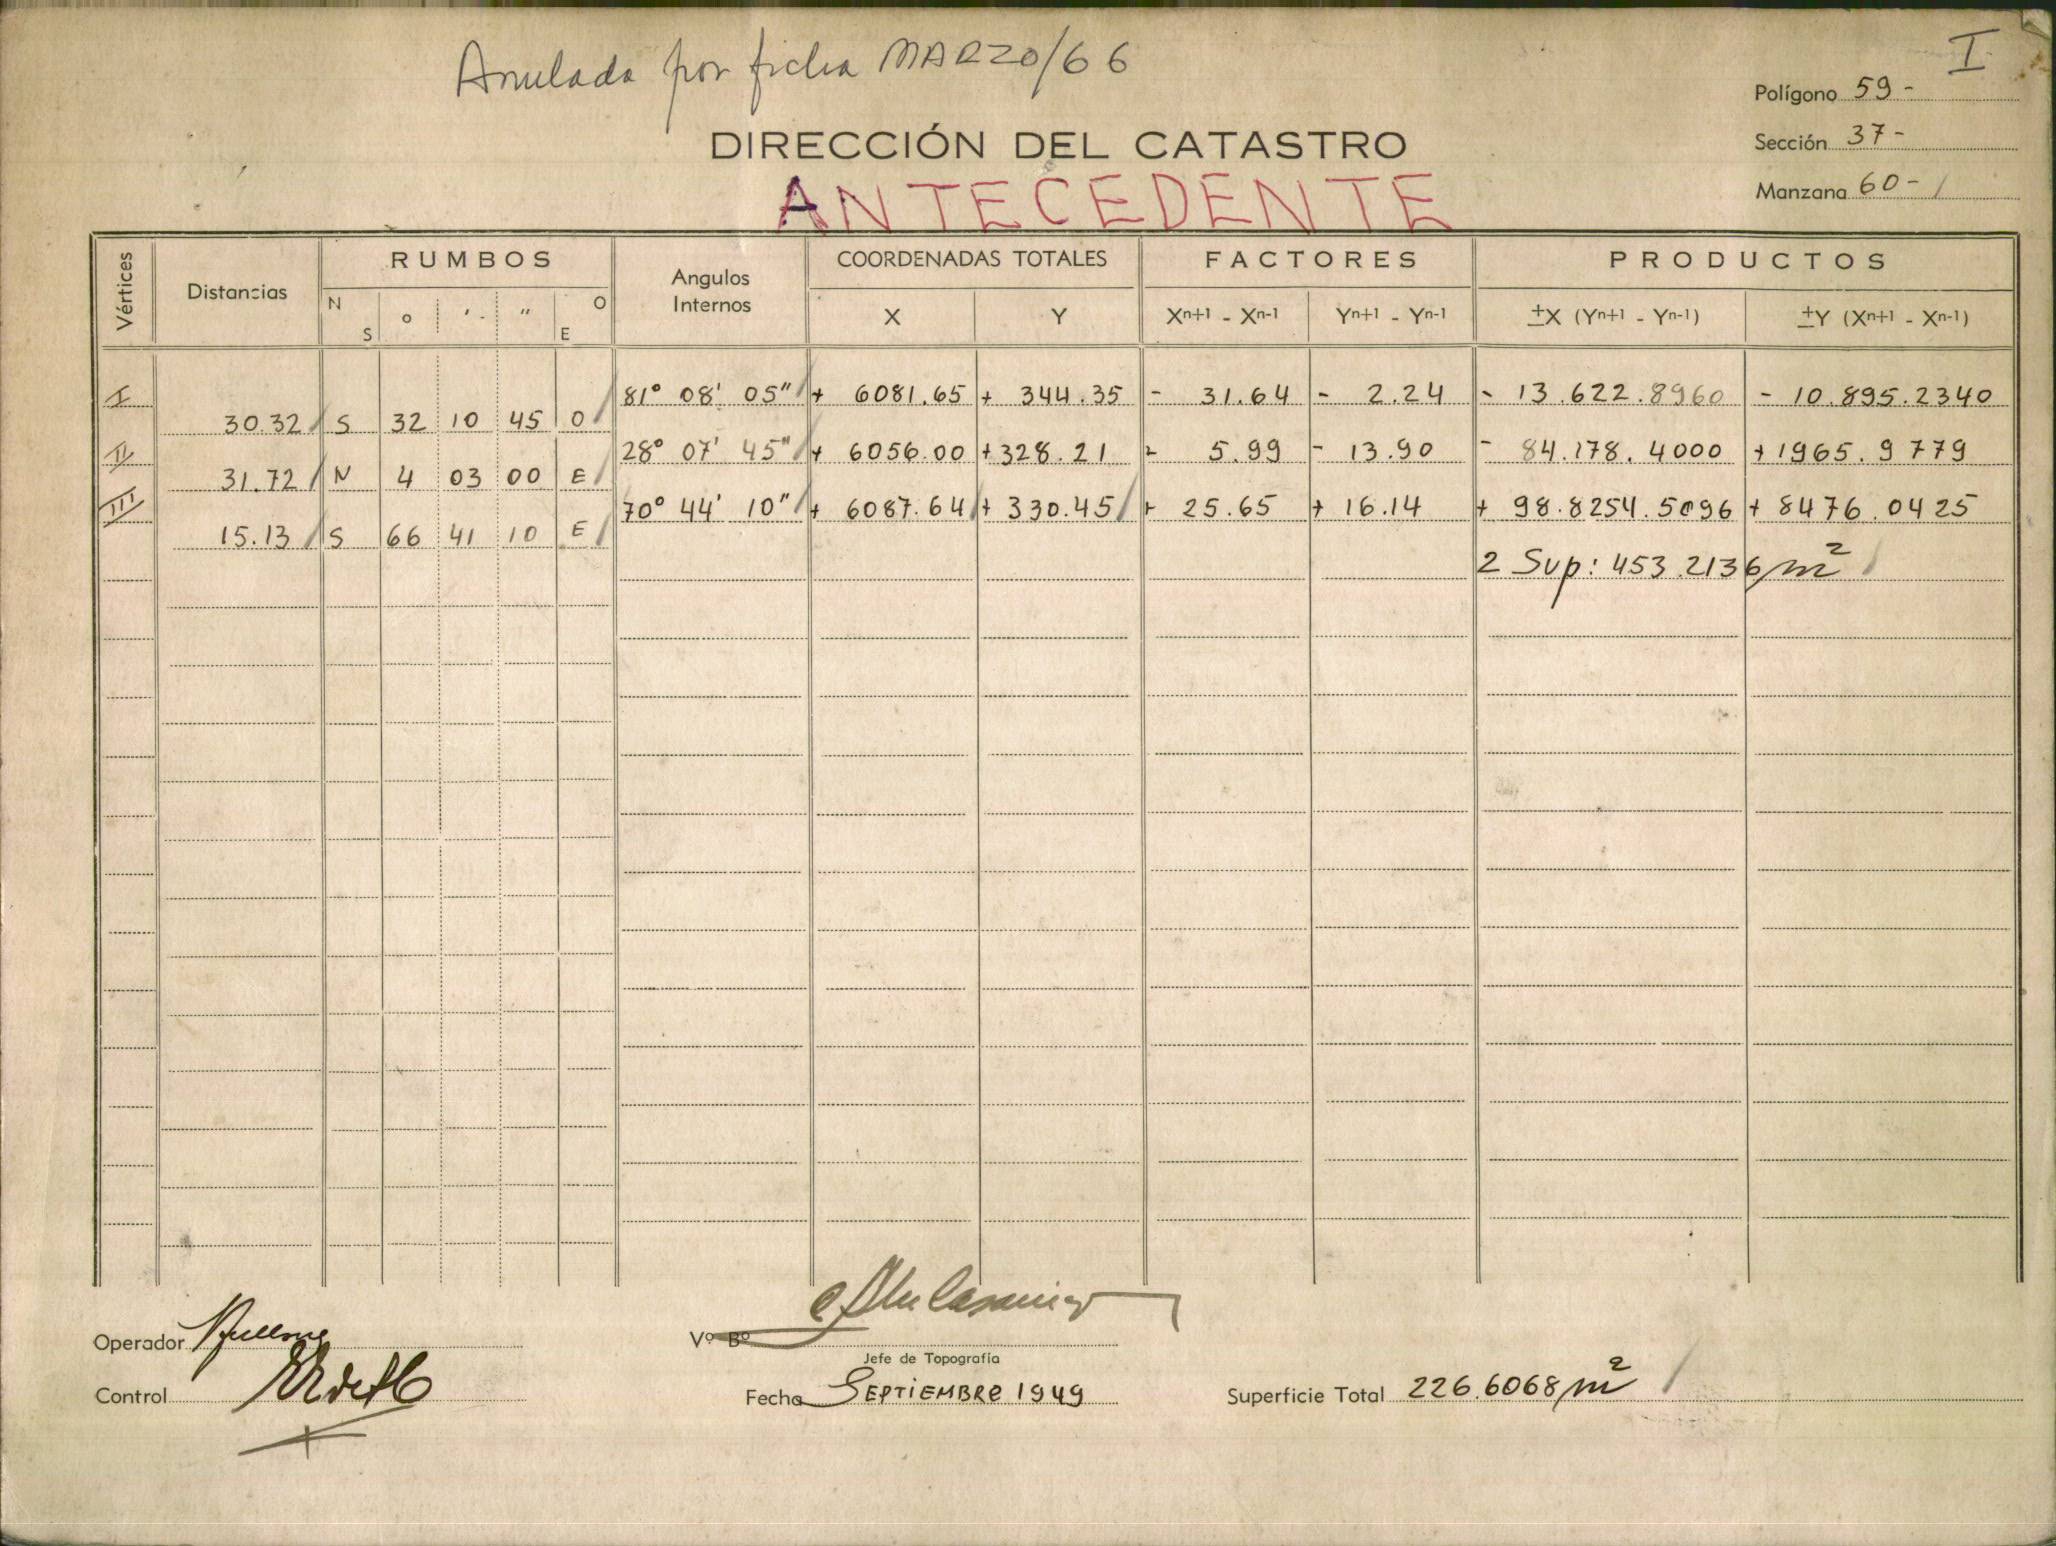 Anulada por ficha MARZO/66
I
Polígono 59-
DIRECCIÓN DEL CATASTRO
Sección 37-
ANTECEDENTE
Manzana 60-
Vértices Distancias RUMBOS Angulos Internos COORDENADAS TOTALES FACTORES PRODUCTOS
N S o ' " O E X Y Xn+1 - Xn-1 Yn+1 - Yn-1 ±X (Yn+1 - Yn-1) ±Y (Xn+1 - Xn-1)
I 81° 08' 05" + 6081.65 + 344.35 - 31.64 - 2.24 - 13.622.8960 - 10.895.2340
30.32 S 32 10 45 O
II 28° 07' 45" + 6056.00 + 328.21 + 5.99 - 13.90 - 84.178.4000 + 1965.9779
31.72 N 4 03 00 E
III 70° 44' 10" + 6087.64 + 330.45 + 25.65 + 16.14 + 98.8254.5096 + 8476.0425
15.13 S 66 41 10 E
2 Sup: 453.2136 m2
Operador
Vº Bº
Jefe de Topografía
Control
Fecha SEPTIEMBRE 1949
Superficie Total 226.6068 m2